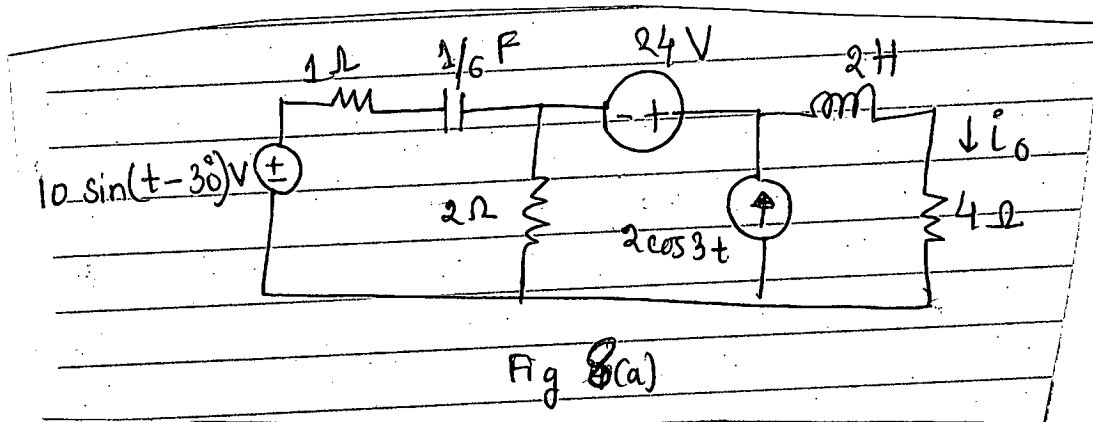 1Ω
1/6 F
24 V
2H
10 sin(t-30°)V
±
- +
↓ i₀
2Ω
2cos3t
↑
4Ω
Fig 8(a)